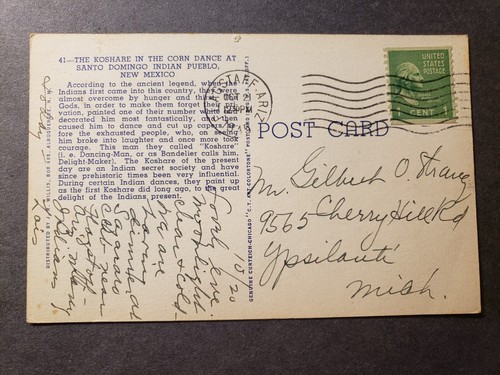 41—THE KOSHARE IN THE CORN DANCE AT
SANTO DOMINGO INDIAN PUEBLO,
NEW MEXICO
According to the ancient legend, when the
Indians first came into this country, they were
almost overcome by hunger and thirst. The
Gods, in order to make them forget their pri-
vation, painted one of their number white and
decorated him most fantastically, and then
caused him to dance and cut up capers before
the exhausted people, who, on seeing
him broke into laughter and once more took
courage. This man they called "Koshare"
(i. e. Dancing-Man, or as Bandelier calls him,
Delight-Maker). The Koshare of the present
day are an Indian secret society and have
since prehistoric times been very influential.
During certain Indian dances, they paint up
as the first Koshare did long ago, to the great
delight of the Indians present.
POST CARD
UNITED
STATES
POSTAGE
1
OCT 21
PM
ARIZ.
Mr. Gilbert O.
9565 Cherry Hill Rd
Ypsilanti
Mich.
10/20
eve.
moonlight
clear & cold -
We are
having
dinner at
near
Flagstaff -
Indians
Lois
GENUINE CURTEICH-CHICAGO "C.T. ART-COLORTONE" POST CARD